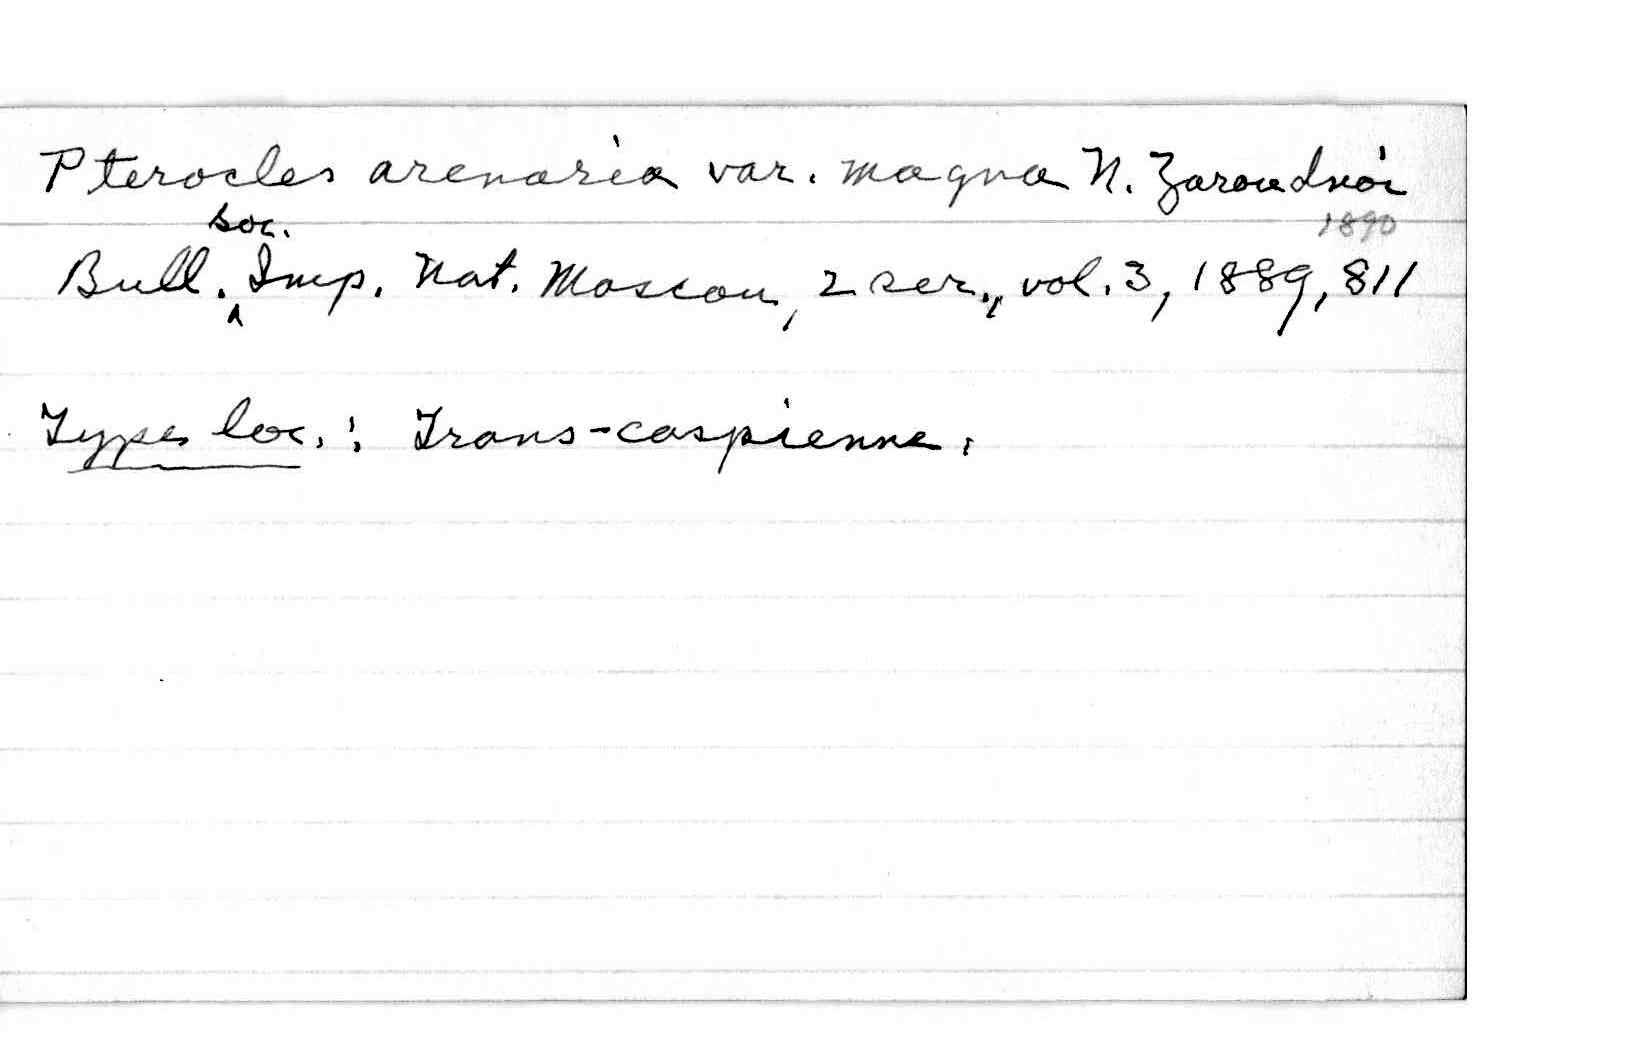 Pterocles arenaria var. magna N. Zaroudnoi
Bull. Soc. Imp. Nat. Moscou, 2 ser., vol. 3, 1889, 811
1890
Type loc.: Trans-caspienne.